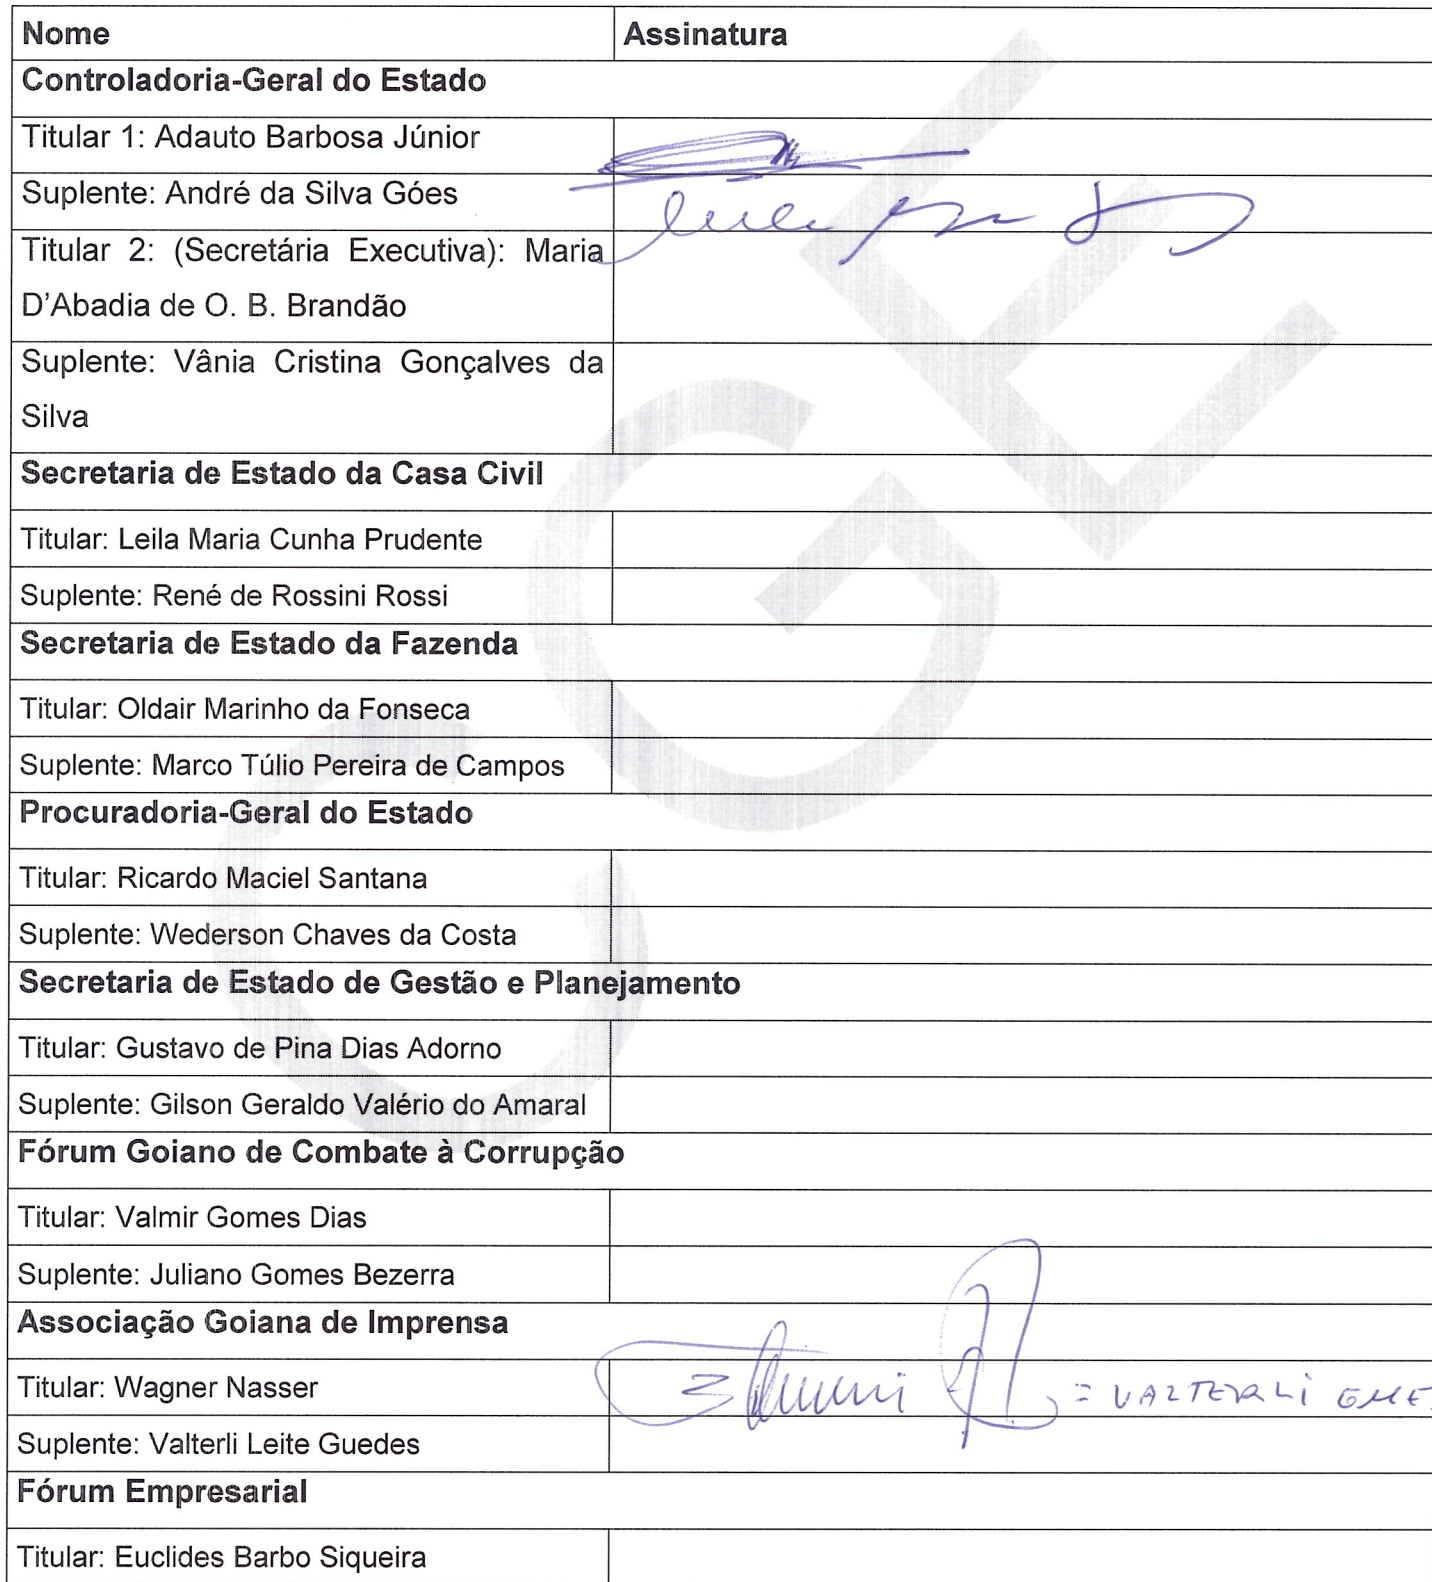 Nome Assinatura
Controladoria-Geral do Estado
Titular 1: Adauto Barbosa Júnior
Suplente: André da Silva Góes
Titular 2: (Secretária Executiva): Maria
D'Abadia de O. B. Brandão
Suplente: Vânia Cristina Gonçalves da
Silva
Secretaria de Estado da Casa Civil
Titular: Leila Maria Cunha Prudente
Suplente: René de Rossini Rossi
Secretaria de Estado da Fazenda
Titular: Oldair Marinho da Fonseca
Suplente: Marco Túlio Pereira de Campos
Procuradoria-Geral do Estado
Titular: Ricardo Maciel Santana
Suplente: Wederson Chaves da Costa
Secretaria de Estado de Gestão e Planejamento
Titular: Gustavo de Pina Dias Adorno
Suplente: Gilson Geraldo Valério do Amaral
Fórum Goiano de Combate à Corrupção
Titular: Valmir Gomes Dias
Suplente: Juliano Gomes Bezerra
Associação Goiana de Imprensa
Titular: Wagner Nasser
= VALTERLi
Suplente: Valterli Leite Guedes
Fórum Empresarial
Titular: Euclides Barbo Siqueira
CGE